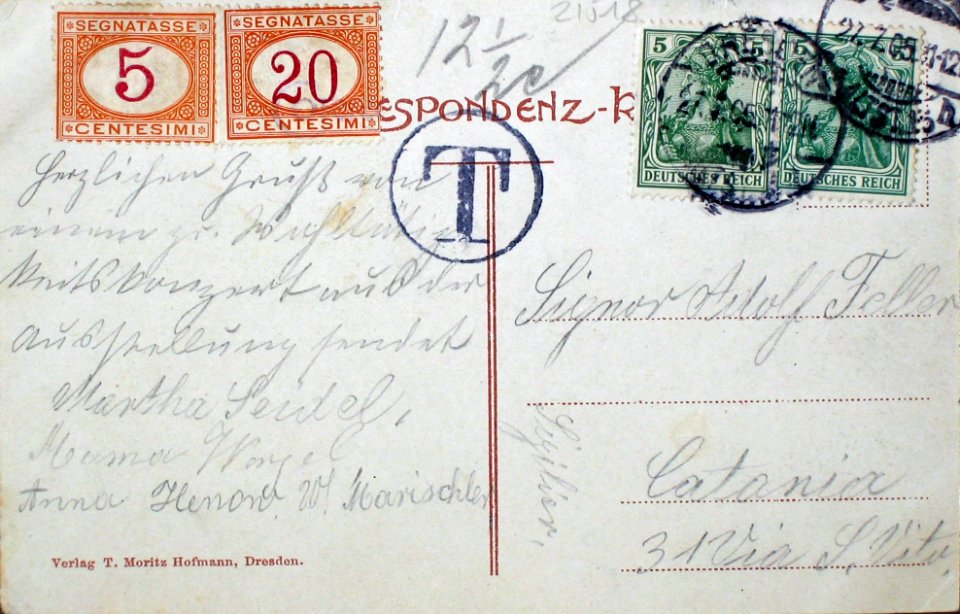 SEGNATASSE
5
CENTESIMI
SEGNATASSE
20
CENTESIMI
12 1/2 c
21518
ESPONDENZ-K
T
5 5
DEUTSCHES REICH
5
DEUTSCHES REICH
DRESDEN
Herzlichen Gruß von
einem gr. Wohltätig
keitskonzert aus der
Ausstellung sendet
Martha Seidel,
Mama
Anna Henow W. Marischler
Verlag T. Moritz Hofmann, Dresden.
Signor Adolf Feller
Catania
31 Via S. Vito,
Sizilien,